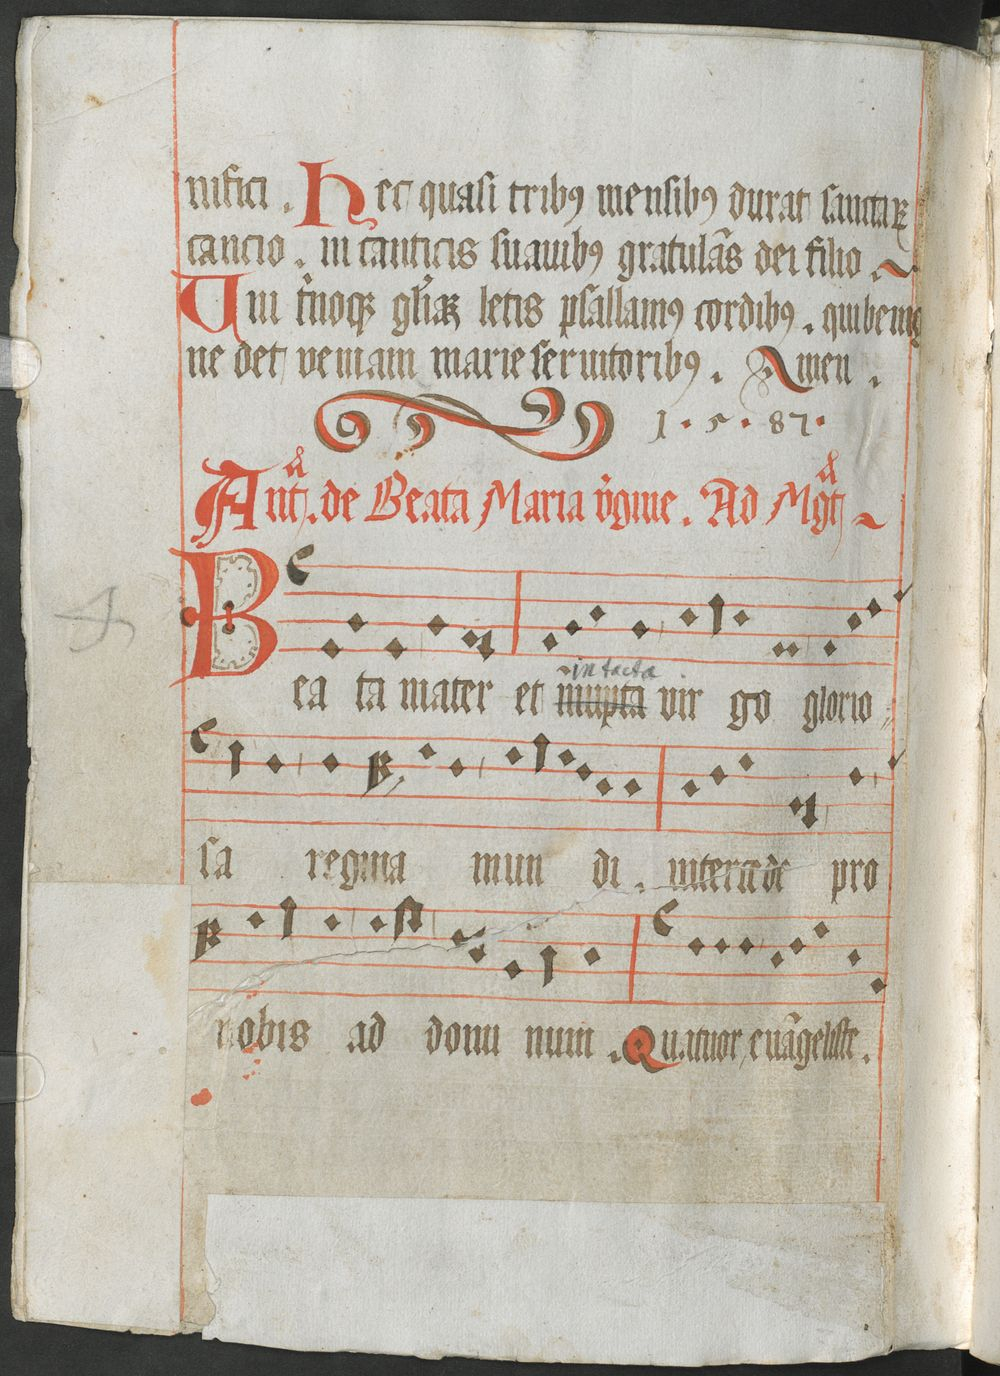 nifici . Hec quasi tribꝰ mensibꝰ durat sanctaꝝ
cancio . in canticis suauibꝰ gratulās dei filio .
Qui letis psallamꝰ cordibꝰ . qui benig
ne det veniam marie seruitoribꝰ . Amen .
1 · 5 · 87 ·
Antᵃ . de Beata Maria v̄gine . Ad Mgtᵃ
intacta
Bea ta mater et innupta vir go glorio
sa regina mun di . intercede pro
nobis ad donu num . Quatuor euāgeliste .